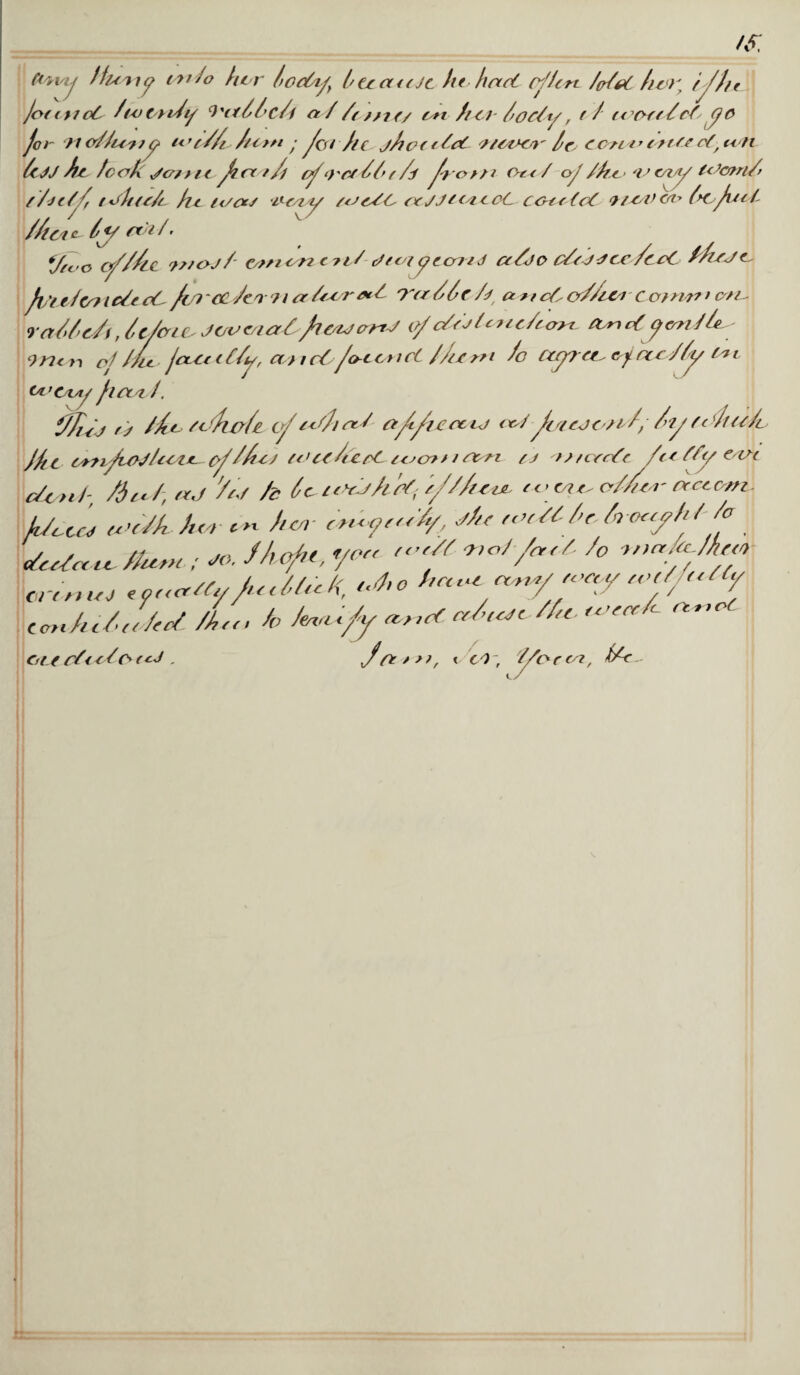 15.
any thing into her body, because he had often told her, if he
found twenty rabbets at times in her body, it would go
for nothing with him; for he should never be convinced, un-
less he took some part of rabbits from out of the very womb
itself, which he was very well assured could never be put
there by art.
Two of the most eminent surgeons also dissected these
pretended præternatural rabbets, and other common
rabbets, before several persons of distinction and gentle-
men of the faculty, and found them to agree exactly in
every part.
This is the whole of what appears at present, by which
the imposture of this wicked woman is made fully evi-
dent, But, as 'tis to be wished, if there were other accom-
plices with her in her iniquity, she will be brought to
declare them; so, I hope, you will not fail to make their
crimes equally publick, who have any way wilfully
contributed thus to terrify and abuse the weak and
credulous.
I am, Sir, Your, &c.